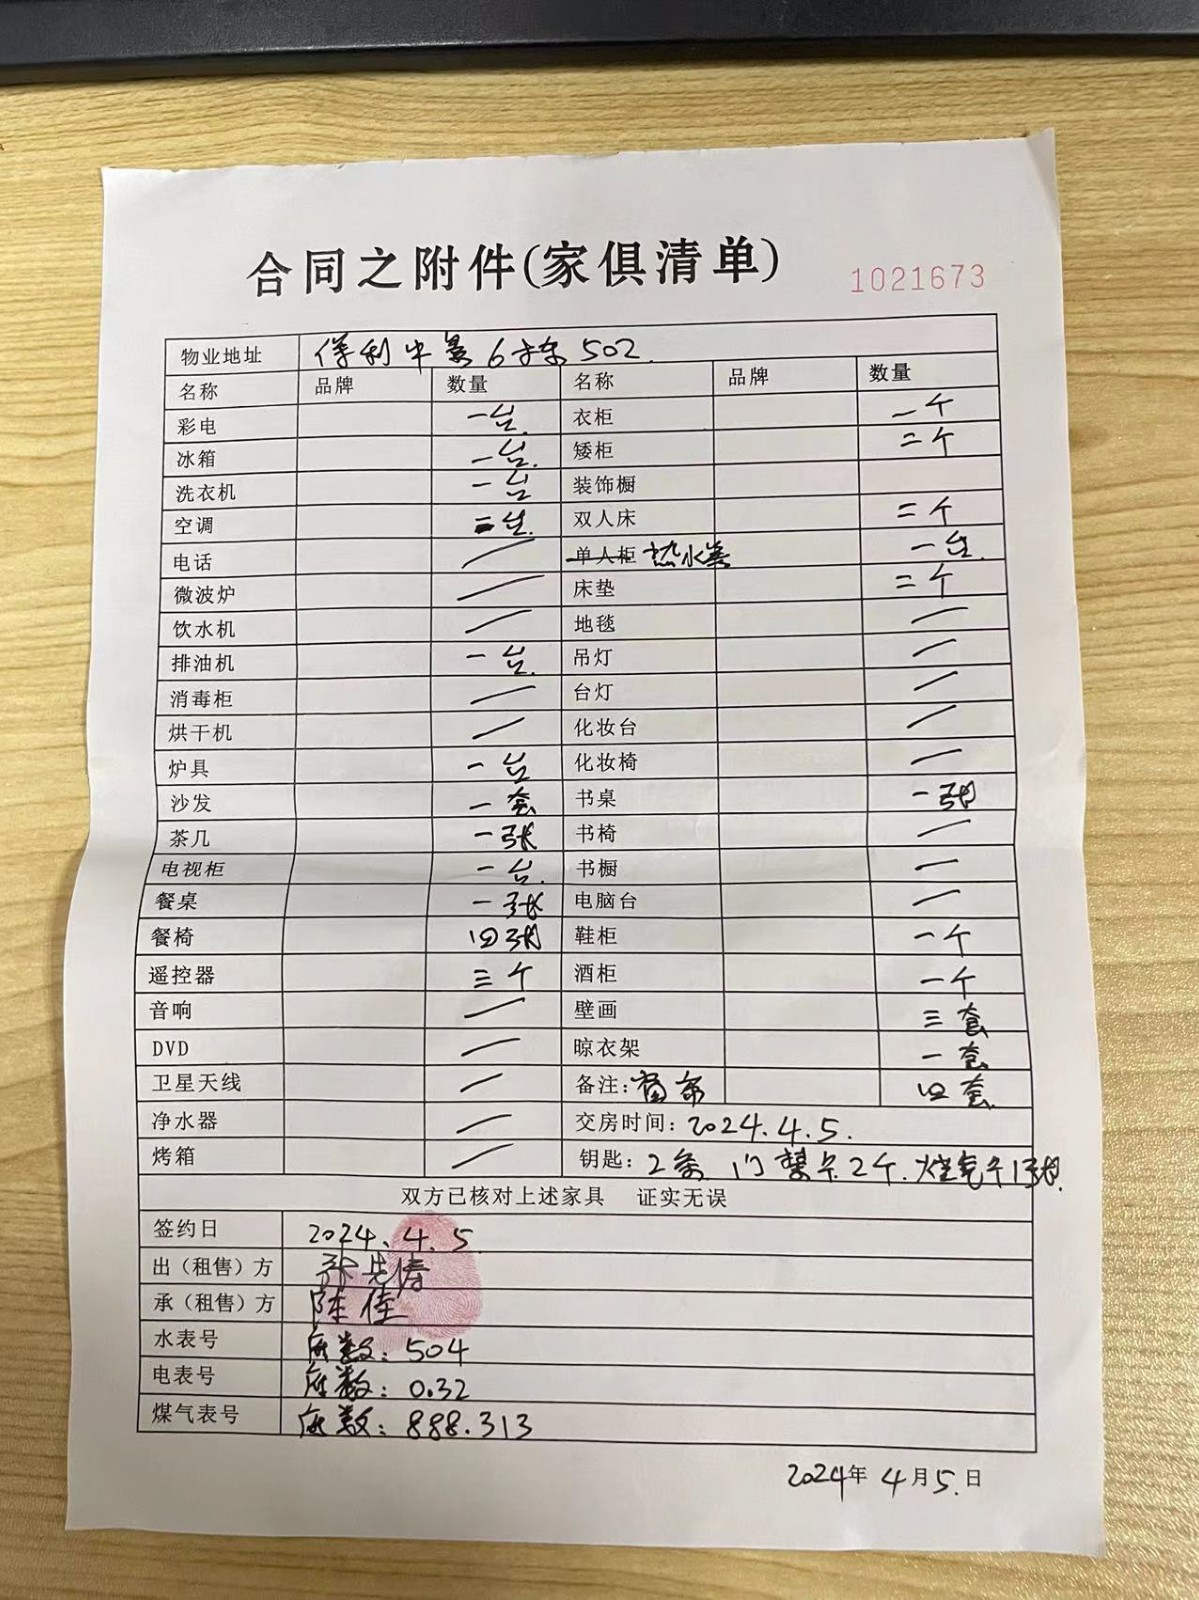 合同之附件(家俱清单)
1021673
物业地址 保利中景6栋502.
名称 品牌 数量 名称 品牌 数量
彩电 一台 衣柜 一个
冰箱 一台. 矮柜 二个
洗衣机 一台 装饰橱
空调 二台. 双人床 二个
电话 / 单人柜 热水器 一台.
微波炉 / 床垫 二个
饮水机 / 地毯 /
排油机 一台. 吊灯 /
消毒柜 / 台灯 /
烘干机 / 化妆台 /
炉具 一台 化妆椅 /
沙发 一套 书桌 一张
茶几 一张 书椅 /
电视柜 一台. 书橱 /
餐桌 一张 电脑台 /
餐椅 四张 鞋柜 一个
遥控器 三个 酒柜 一个
音响 / 壁画 三套
DVD / 晾衣架 一套
卫星天线 / 备注: 窗帘 四套
净水器 / 交房时间: 2024.4.5.
烤箱 / 钥匙: 2条 门禁卡2个. 燃气卡1张.
双方已核对上述家具 证实无误
签约日 2024.4.5
出（租售）方
承（租售）方 陈佳
水表号 底数: 504
电表号 底数: 0.32
煤气表号 底数: 888.313
2024年 4月5.日